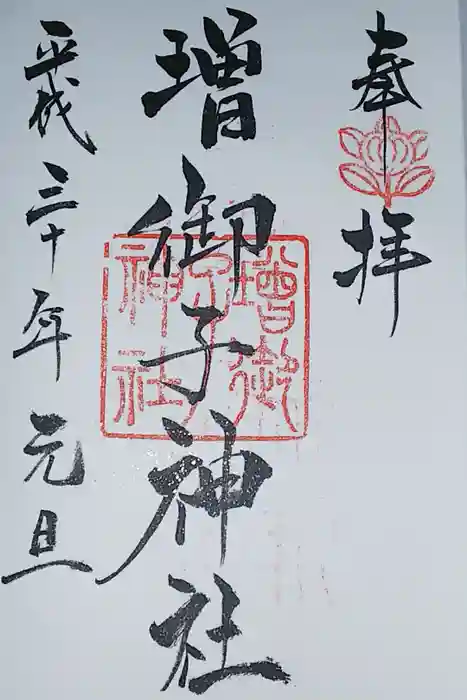 奉拝
増御子神社
増御子神社
平成三十年元旦